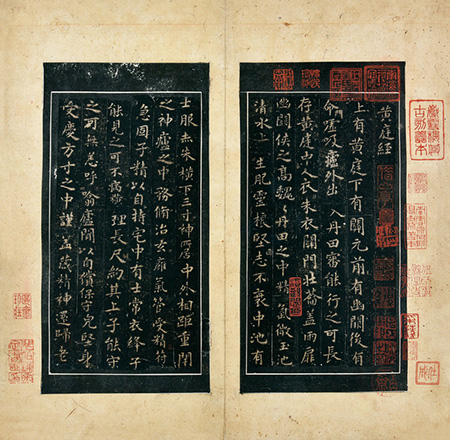 黃庭經
上有黃庭下有關元前有幽闕後有
命廬吸廬外出入丹田審能行之可長
存黃庭中人衣朱衣關門壯籥蓋兩扉
幽闕俠之高魏丹田之中精氣微玉池
清水上生肥靈根堅志不衰中池有
士服赤朱橫下三寸神所居中外相距重閉
之神廬之中務脩治玄膺氣管受精符
急固子精以自持宅中有士常衣絳子
能見之可不病橫理長尺約其上子能守
之可無恙呼噏廬間以自償保守完堅身
受慶方寸之中謹蓋藏精神還歸老